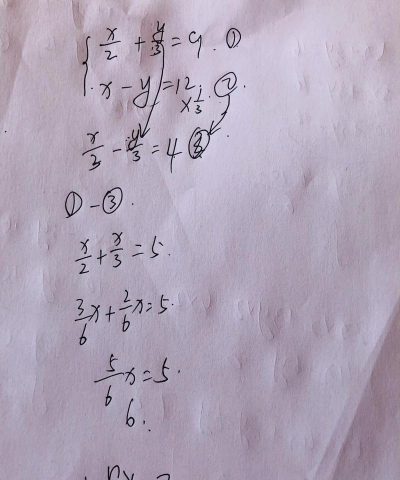 x/2 + y/3 = 9 . ①
x - y = 12 ②
× 1/3
x/3 - y/3 = 4 ③
① - ③.
x/2 + x/3 = 5.
3/6 x + 2/6 x = 5.
5/6 x = 5.
6.